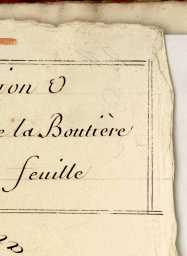 ion O
e la Boutière
feuille